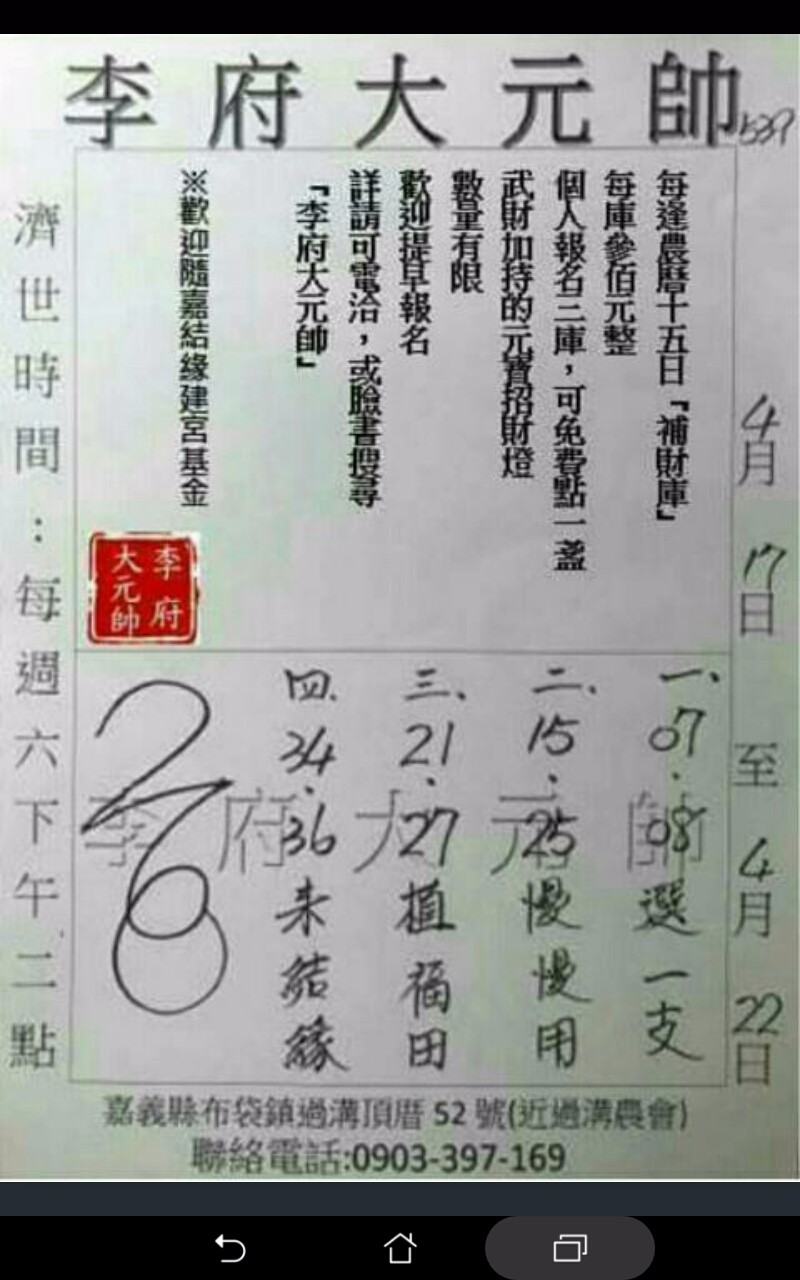 李府大元帥
539
4月17日至4月22日
每逢農曆十五日「補財庫」
每庫參佰元整
個人報名三庫，可免費點一盞
武財加持的元寶招財燈
數量有限
歡迎提早報名
詳請可電洽，或臉書搜尋
「李府大元帥」
※歡迎隨嘉結緣建宮基金
李府
大元帥
濟世時間：每週六下午二點
一、07.08選一支
二、15.25慢慢用
三、21.27植福田
四.34.36来結緣
李府大元帥
嘉義縣布袋鎮過溝頂厝 52 號(近過溝農會)
聯絡電話:0903-397-169